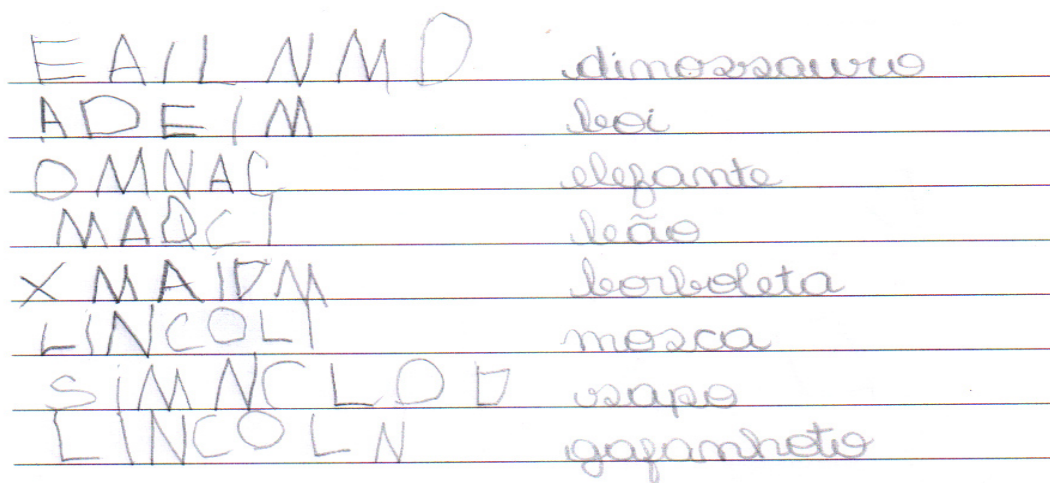 EAILNMD dinossauro
ADEIM boi
OMNAC elefante
MADCI leão
XMAIDM borboleta
LINCOLI mosca
SIMNCLOD sapo
LINCOLN gafanhoto